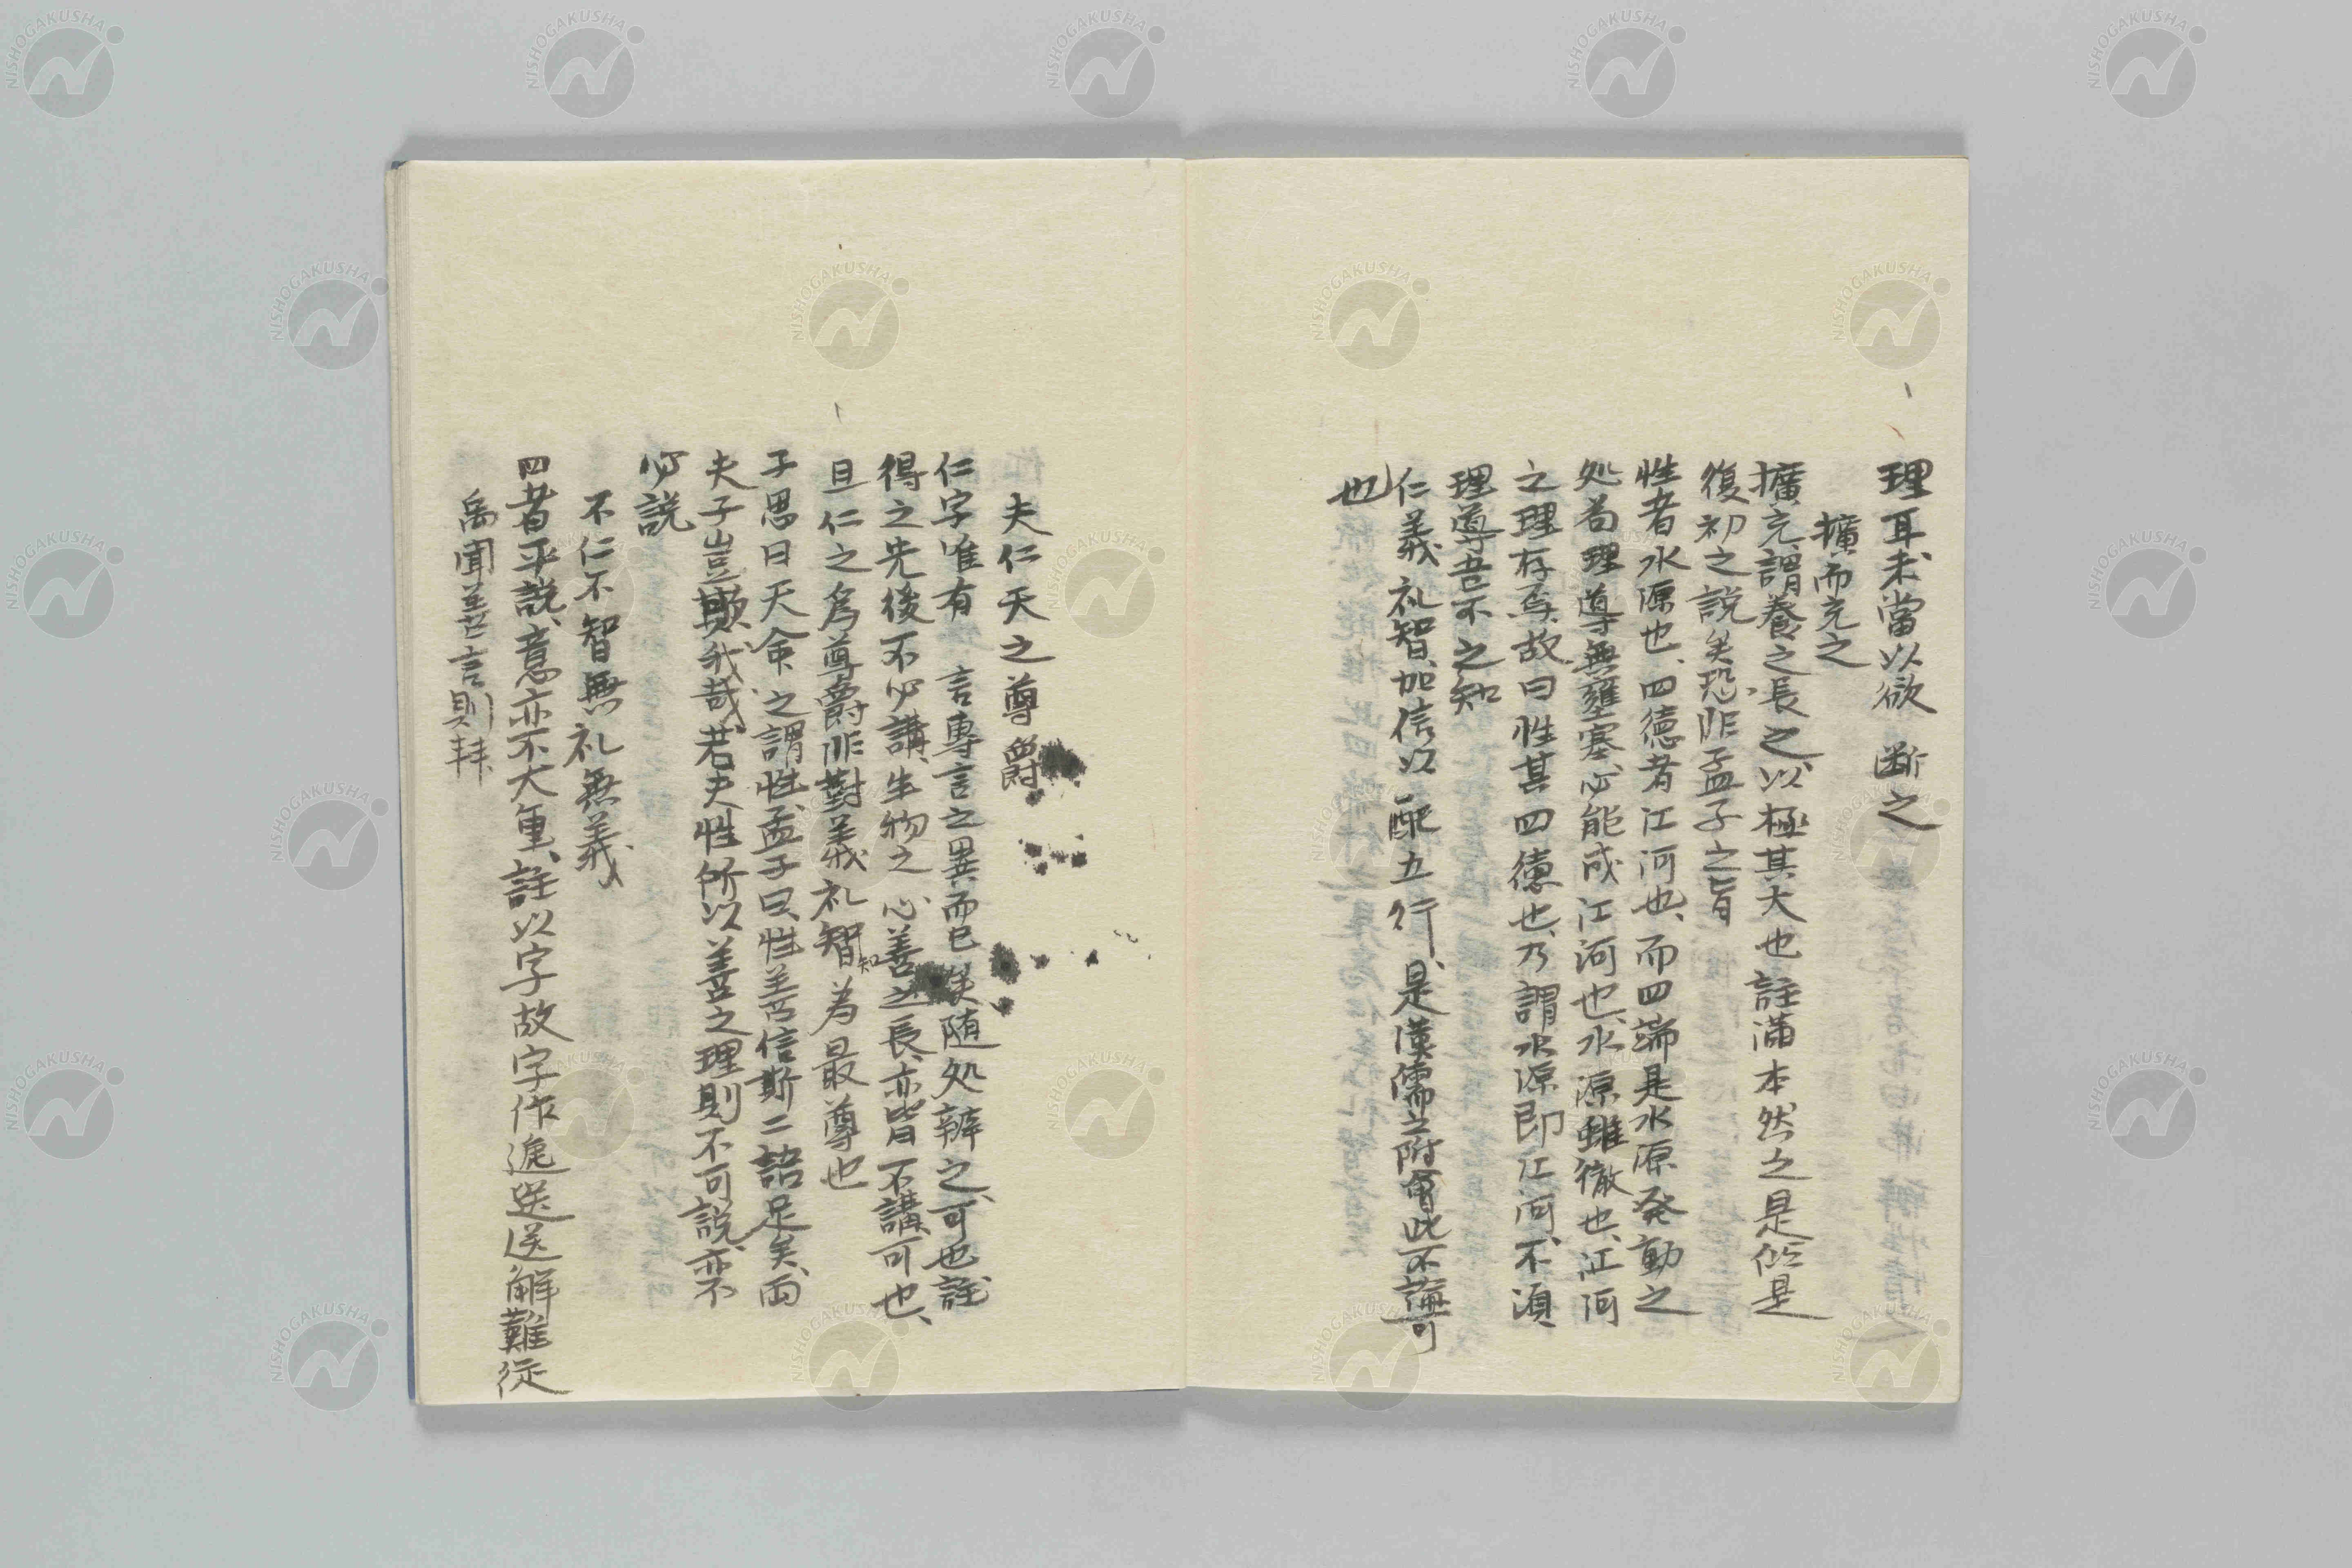 理耳未當以欲断之
擴而充之
擴充謂養之長之以極其大也註満本然之是似是
復初之説矣恐非孟子之旨
性者水源也、四德者江河也、而四端是水原発動之
処為理導無壅塞必能成江河也、水源雖徹也、江河
之理存焉、故曰性其四德也、乃謂水源即江河、不須
理導吾不之知
仁義礼智加信以配五行、是漢儒之附會此不講可
也
夫仁天之尊爵
仁字唯有言專言之異而已矣、随処辨之、可也註
得之先後不必講、生物之心善之長、亦皆不講可也、
且仁之為尊爵非對義礼智為最尊也
知
子思曰天命之謂性、孟子曰、性善信斯二語足矣、両
夫子豈欺我哉、若夫性所以善之理則不可説、亦不
必説
不仁不智無礼無義
四者平説、意亦不大重、註以字故字作遞送解難從
禹聞善言則拜
NISHOGAKUSHA